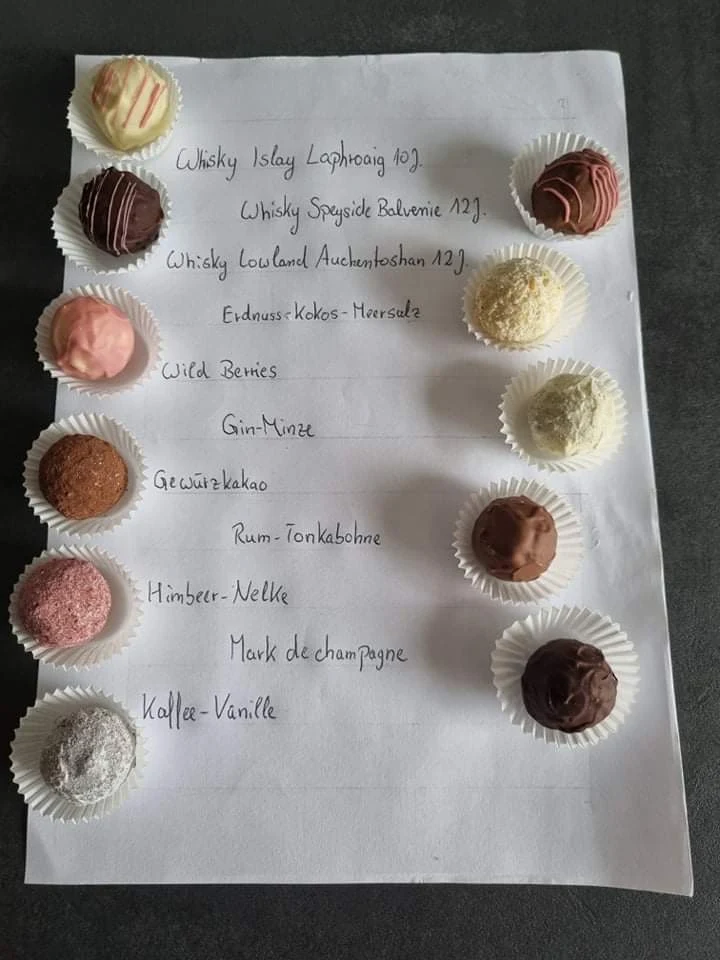 Whisky Islay Laphroaig 10J.
Whisky Speyside Balvenie 12J.
Whisky Lowland Auchentoshan 12J.
Erdnuss-Kokos-Meersalz
Wild Berries
Gin-Minze
Gewürzkakao
Rum-Tonkabohne
Himbeer-Nelke
Mark de champagne
Kaffee-Vanille